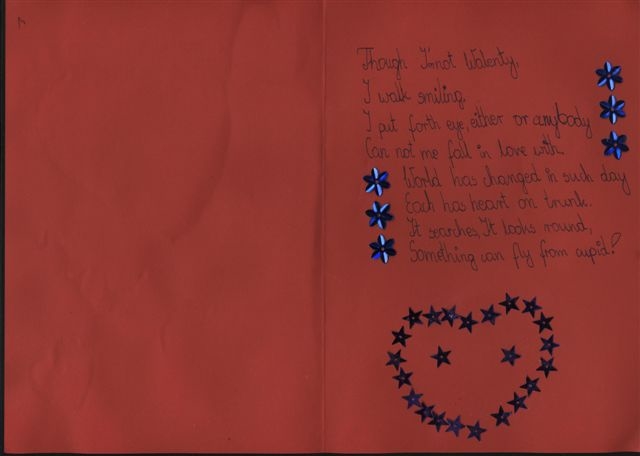 Though I'm not Walenty,
I walk smiling.
I put forth eye, either or anybody
Can not me fall in love with.
World has changed in such day
Each has heart on trunk.
It searches, It looks round,
Something can fly from cupid!